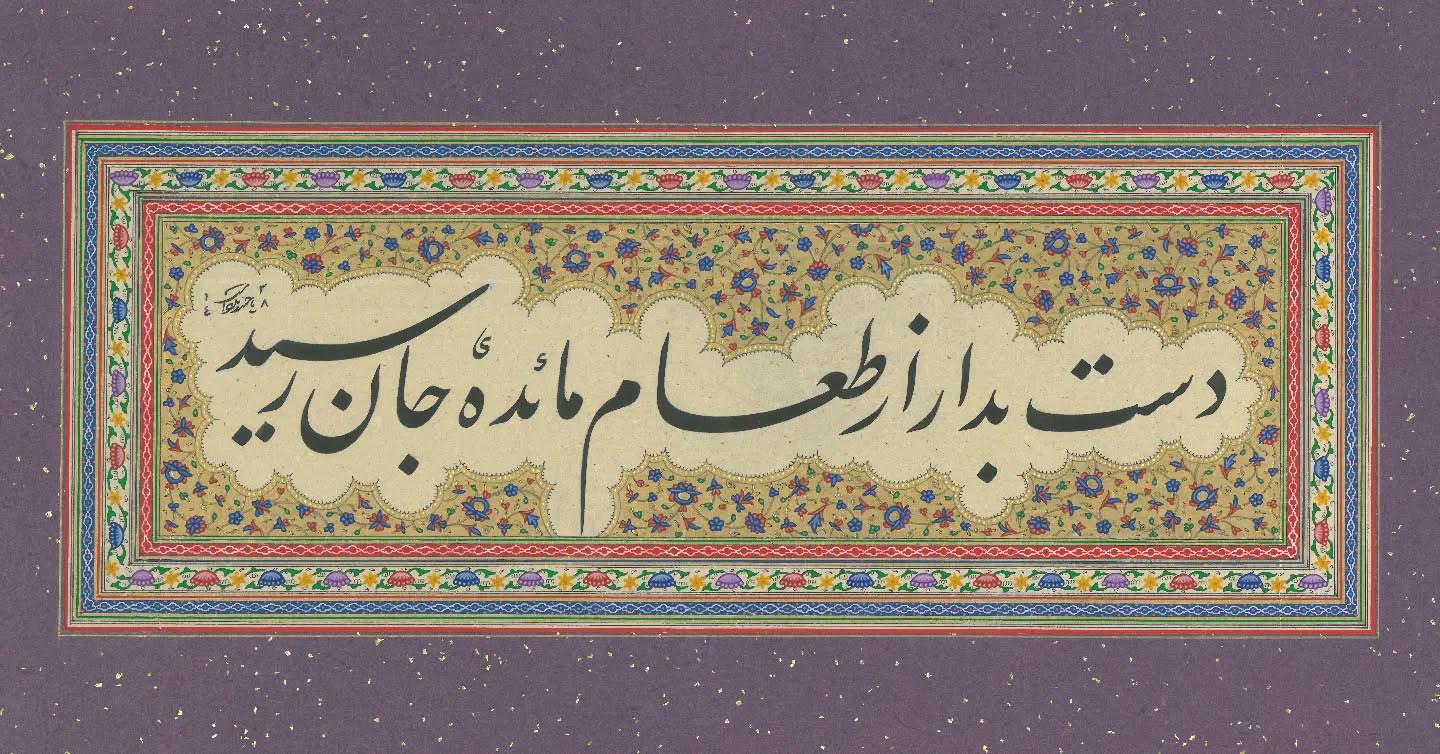 دست بدار از طعام مائدهٔ جان رسید